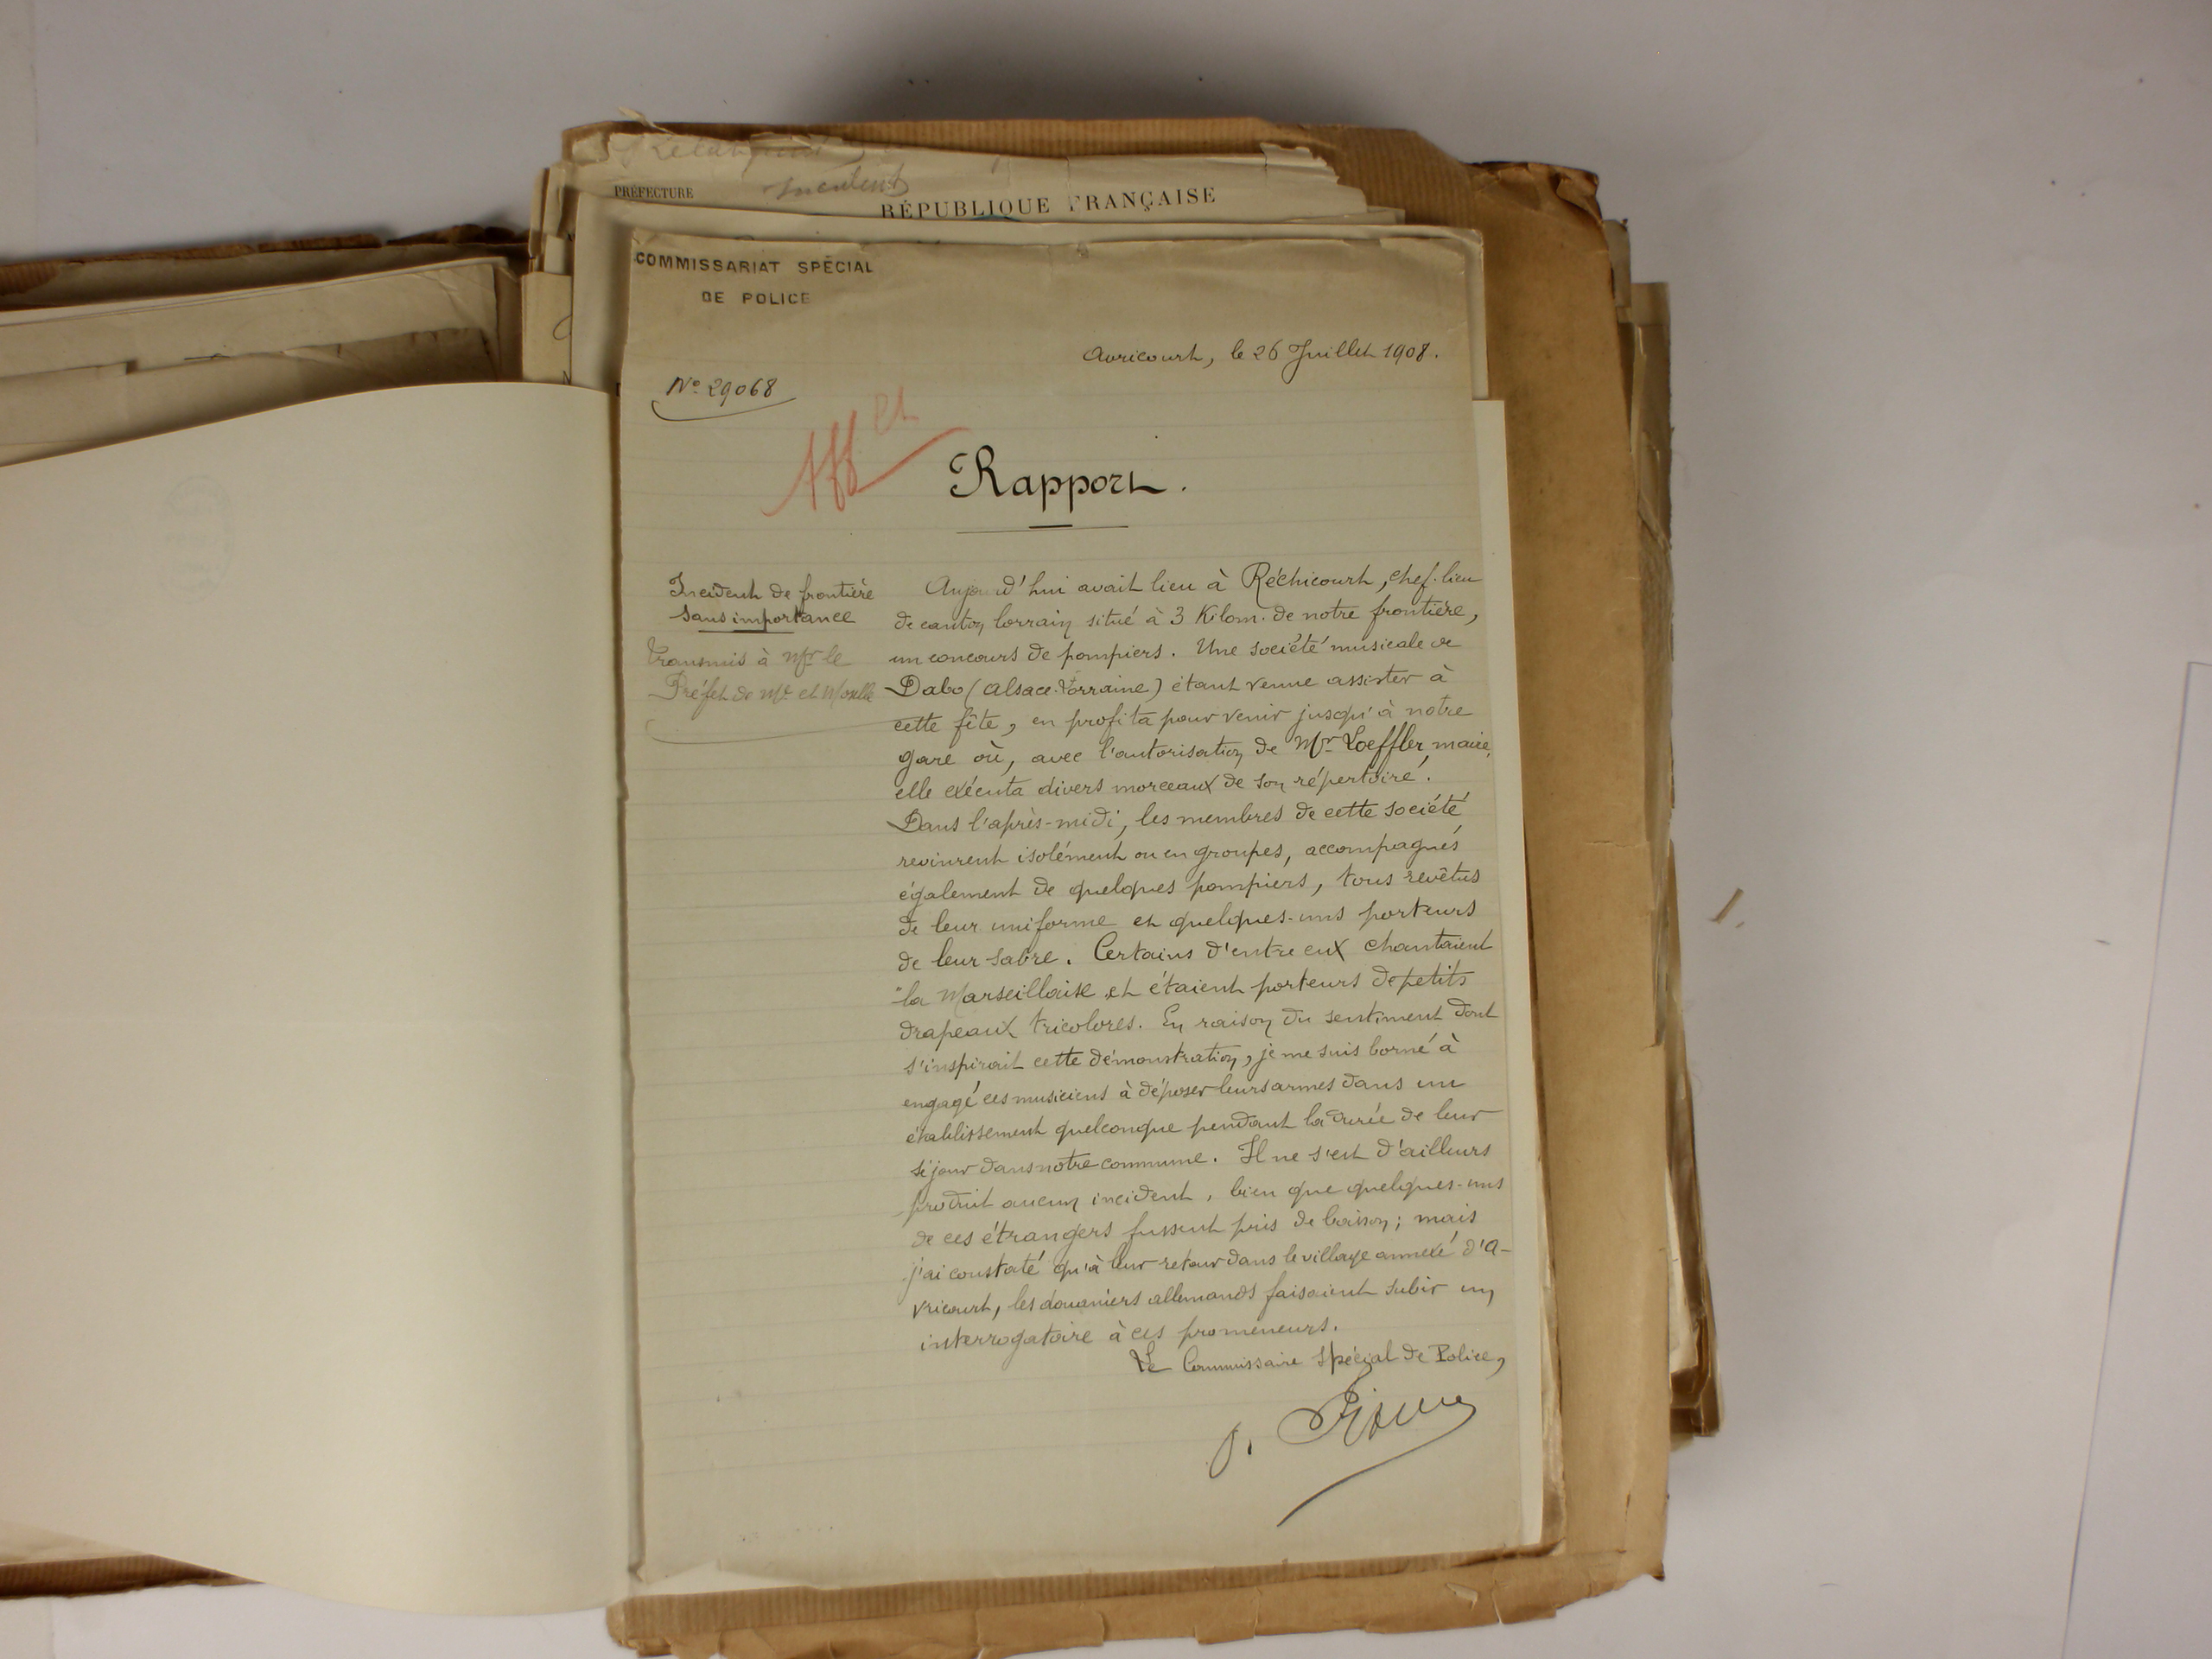 PRÉFECTURE
RÉPUBLIQUE FRANÇAISE
COMMISSARIAT SPÉCIAL
DE POLICE
Avricourt, le 26 Juillet 1908.
N° 29068
Aff
Rapport.
Incident de frontière
sans importance
Transmis à Mr le
Préfet de Mthe et Moselle
Aujourd'hui avait lieu à Réchicourt, chef-lieu
de canton lorrain situé à 3 Kilom. de notre frontière,
un concours de pompiers. Une société musicale de
Dabo (Alsace-Lorraine) étant venue assister à
cette fête, en profita pour venir jusqu'à notre
gare où, avec l'autorisation de Mr Loeffler, maire,
elle exécuta divers morceaux de son répertoire.
Dans l'après-midi, les membres de cette société
revinrent isolément ou en groupes, accompagnés
également de quelques pompiers, tous revêtus
de leur uniforme et quelques-uns porteurs
de leur sabre. Certains d'entre eux chantaient
"la Marseillaise" et étaient porteurs de petits
drapeaux tricolores. En raison du sentiment dont
s'inspirait cette démonstration, je me suis borné à
engagé ces musiciens à déposer leurs armes dans un
établissement quelconque pendant la durée de leur
séjour dans notre commune. Il ne s'est d'ailleurs
produit aucun incident, bien que quelques-uns
de ces étrangers fussent pris de boisson; mais
j'ai constaté qu'à leur retour dans le village annexé d'A-
vricourt, les douaniers allemands faisaient subir un
interrogatoire à ces promeneurs.
Le Commissaire Spécial de Police,